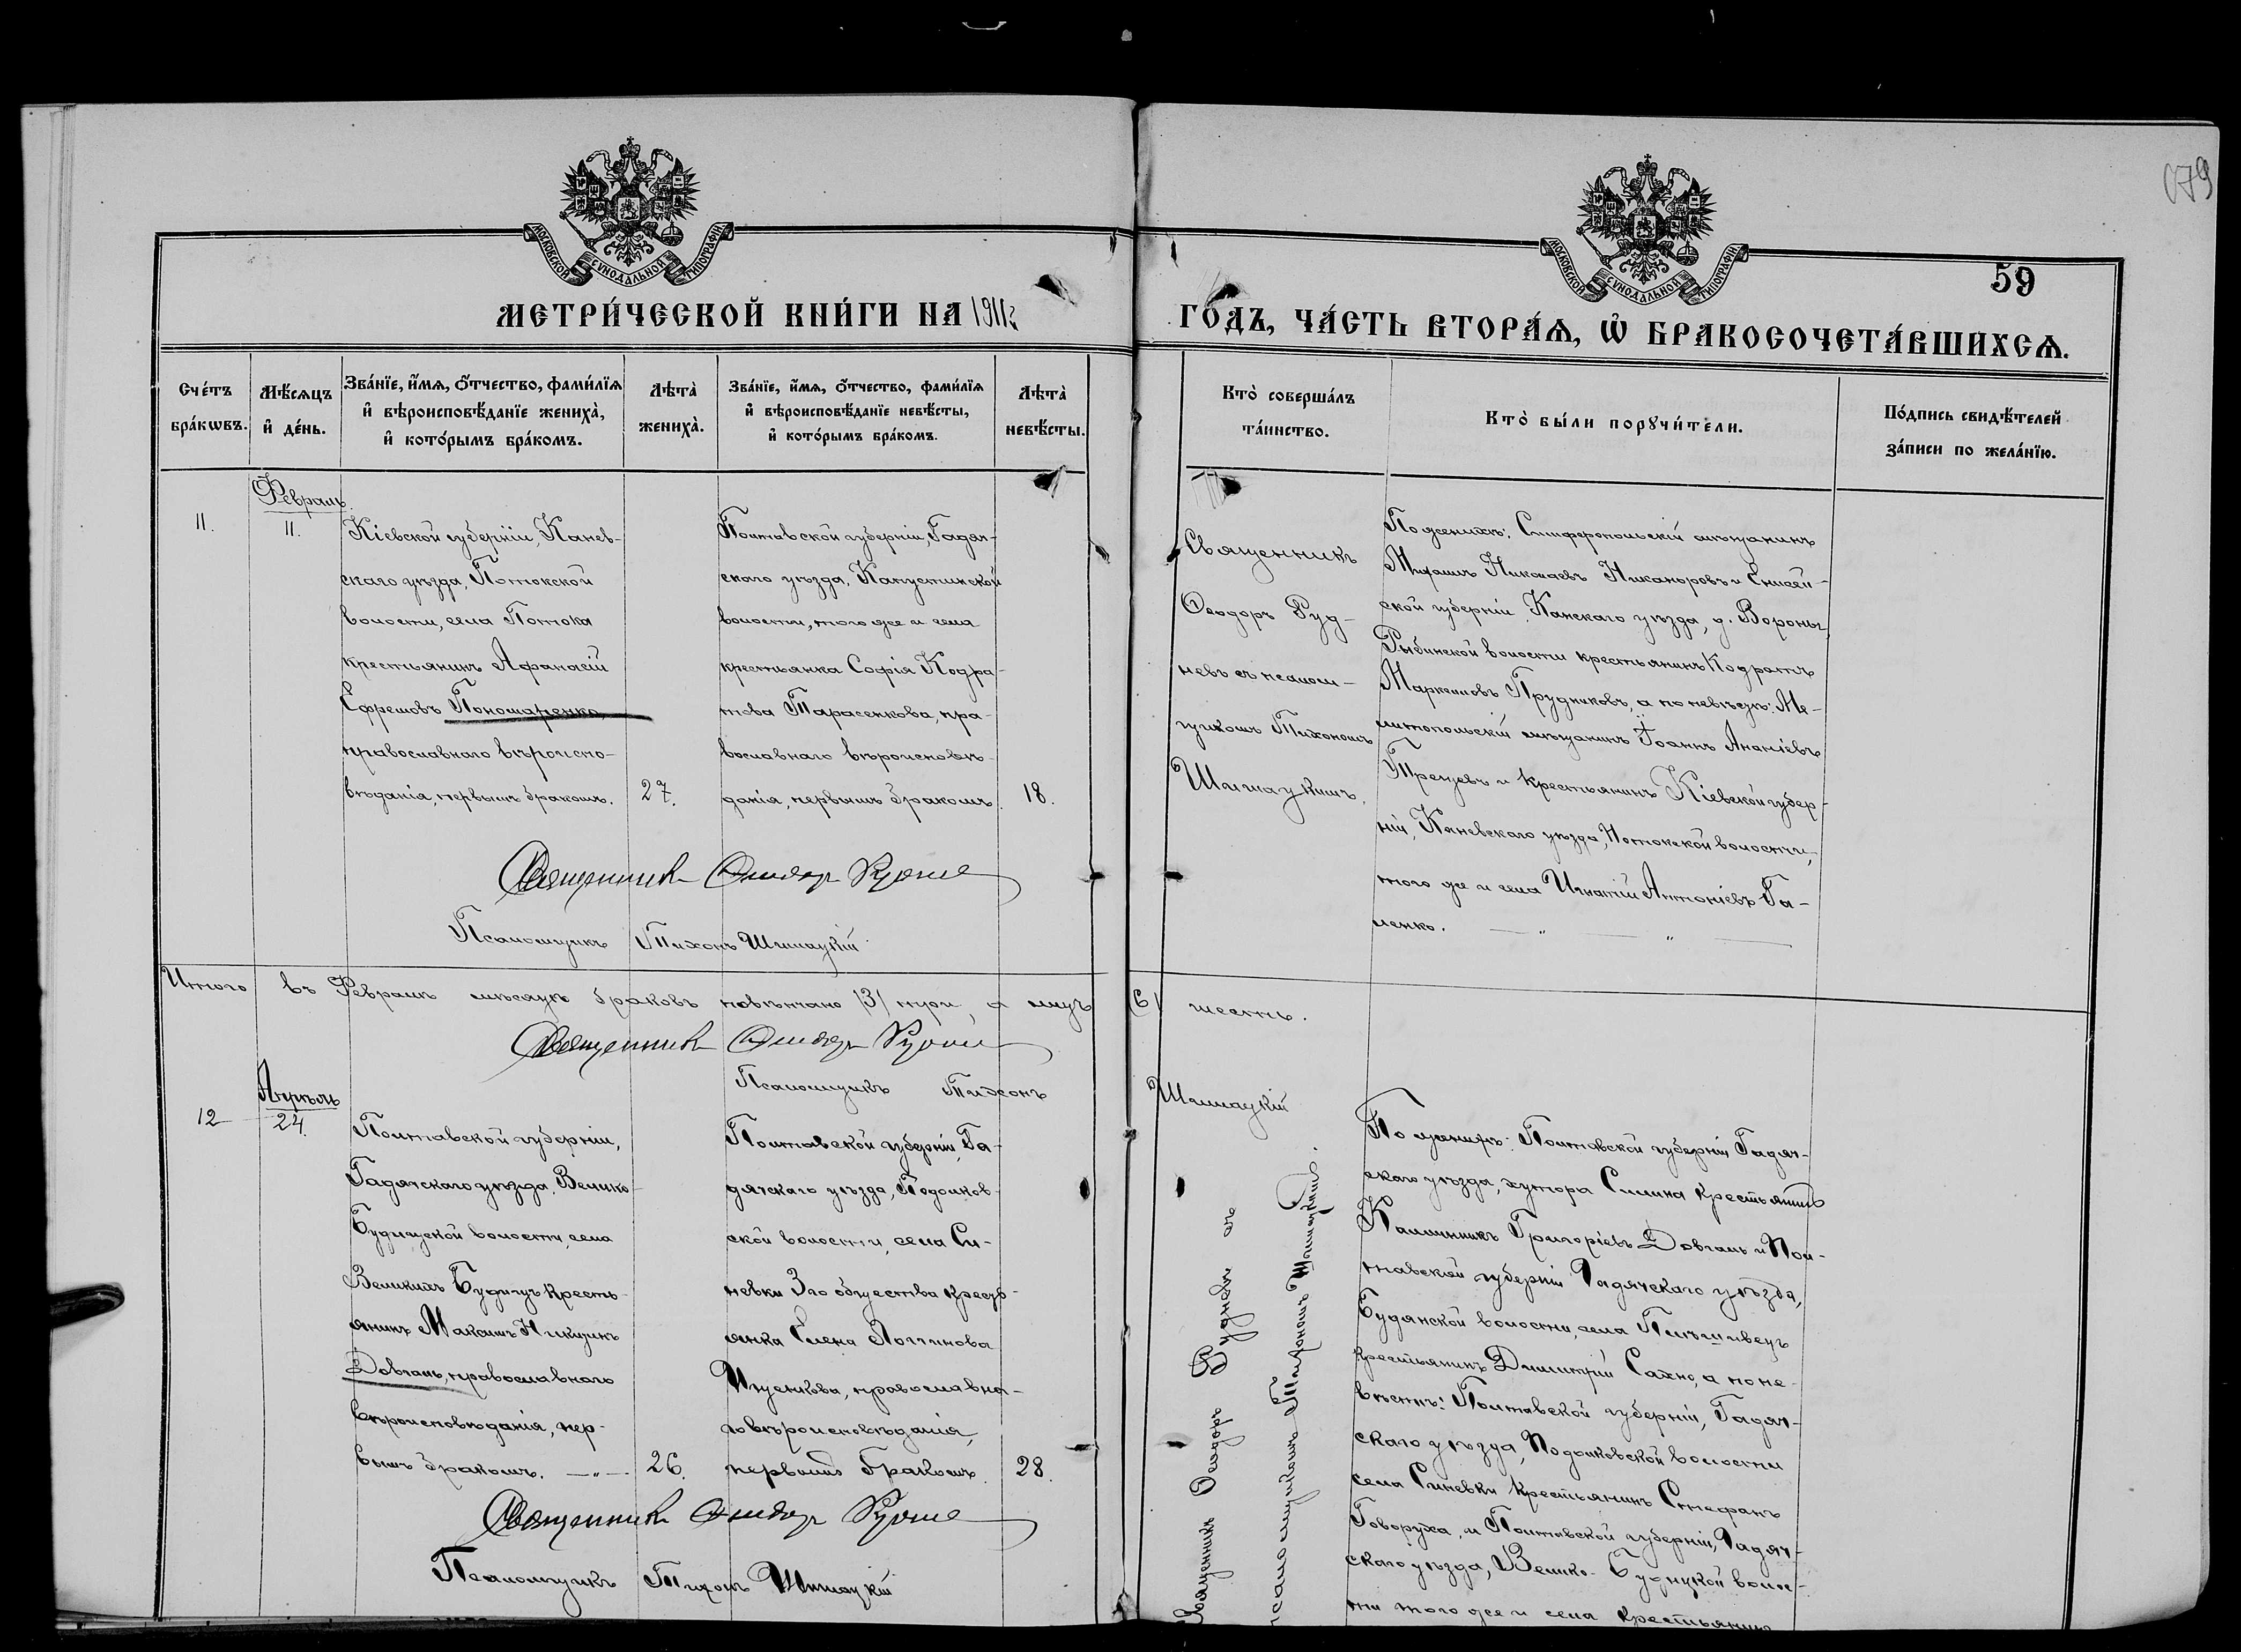 079
МОСКОВСКОЙ СѴНОДАЛЬНОЙ ТИПОГРАФІИ
МОСКОВСКОЙ СѴНОДАЛЬНОЙ ТИПОГРАФІИ
59
МЕТРИ́ЧЕСКОЙ КНИ́ГИ НА 1911 г.
ГО́ДЪ, ЧА́СТЬ ВТОРА́Ѧ, Ѿ БРАКОСОЧЕТА́ВШИХСѦ.
Сче́тъ бра́кѡвъ.
Мѣ́сѧцъ и҆ де́нь.
Зва́нїе, и҆́мѧ, ѻ҆́тчество, фами́лїѧ
и҆ вѣроисповѣ́данїе жениха̀,
и҆ кото́рымъ бра́комъ.
Лѣта̀ жениха̀.
Зва́нїе, и҆́мѧ, ѻ҆́тчество, фами́лїѧ
и҆ вѣроисповѣ́данїе невѣ́сты,
и҆ кото́рымъ бра́комъ.
Лѣта̀ невѣ́сты.
Кто̀ соверша́лъ
та́инство.
Кто̀ бы́ли порꙋчи́тели.
По́дпись свидѣ́телей
за́писи по жела́нїю.
Февраль.
11.
11.
Кіевской губерніи, Канев-
скаго уѣзда, Потокской
волости, села Потока
крестьянинъ Афанасій
Ефремовъ Пономаренко,
православнаго вѣроиспо-
вѣданія, первымъ бракомъ.
27.
Полтавской губерніи, Гадяч-
скаго уѣзда, Капустинской
волости, того же и села
крестьянка Софія Кодра-
това Тарасенкова, пра-
вославнаго вѣроисповѣ-
данія, первымъ бракомъ.
18.
Священникъ
Ѳеодоръ Руд-
невъ съ псалом-
щикомъ Тихономъ
Шишацкимъ.
По женихѣ: Симферопольскій мѣщанинъ
Михаилъ Николаевъ Никаноровъ и Енисей-
ской губерніи, Канскаго уѣзда, д. Вороны,
Рыбинской волости крестьянинъ Кодратъ
Маркелловъ Прудниковъ, а по невѣстѣ: Ме-
литопольскій мѣщанинъ Іоаннъ Ананіевъ
и крестьянинъ Кіевской губер-
ніи, Каневскаго уѣзда, Потокской волости,
того же и села Игнатій Антоніевъ Га-
ленко.
Священникъ Ѳеодоръ Рудневъ
Псаломщикъ Тихонъ Шишацкій
Итого въ Февралѣ мѣсяцѣ браковъ повѣнчано (3) три, а лицъ (6) шесть.
Священникъ Ѳеодоръ Рудневъ
Псаломщикъ Тихонъ Шишацкій
Апрѣль
12
24.
Полтавской губерніи,
Гадячскаго уѣзда, Велико-
Будищской волости, села
Великихъ Будищъ кресть-
янинъ Максимъ Никитинъ
Довгаль, православнаго
вѣроисповѣданія, пер-
вымъ бракомъ.
26.
Полтавской губерніи, Га-
дячскаго уѣзда,
ской волости, села Си-
невки 3го общества кресть-
янка Елена Логгинова
православна-
го вѣроисповѣданія,
первымъ бракомъ.
28.
Священникъ Ѳеодоръ Рудневъ съ
псаломщикомъ Тихономъ Шишацкимъ.
По женихѣ: Полтавской губерніи Гадяч-
скаго уѣзда, хутора Силина крестьянинъ
Каллинникъ Григоріевъ Довгаль и Пол-
тавской губерніи Гадячскаго уѣзда,
Будянской волости, села
крестьянинъ Димитрій Сахно, а по не-
вѣстѣ: Полтавской губерніи, Гадяч-
скаго уѣзда, волости
села Синевки крестьянинъ Стефанъ
Говоруха, и Полтавской губерніи, Гадяч-
скаго уѣзда, Велико-Будищской волос-
ти того же и села крестьянинъ
Священникъ Ѳеодоръ Рудневъ
Псаломщикъ Тихонъ Шишацкій